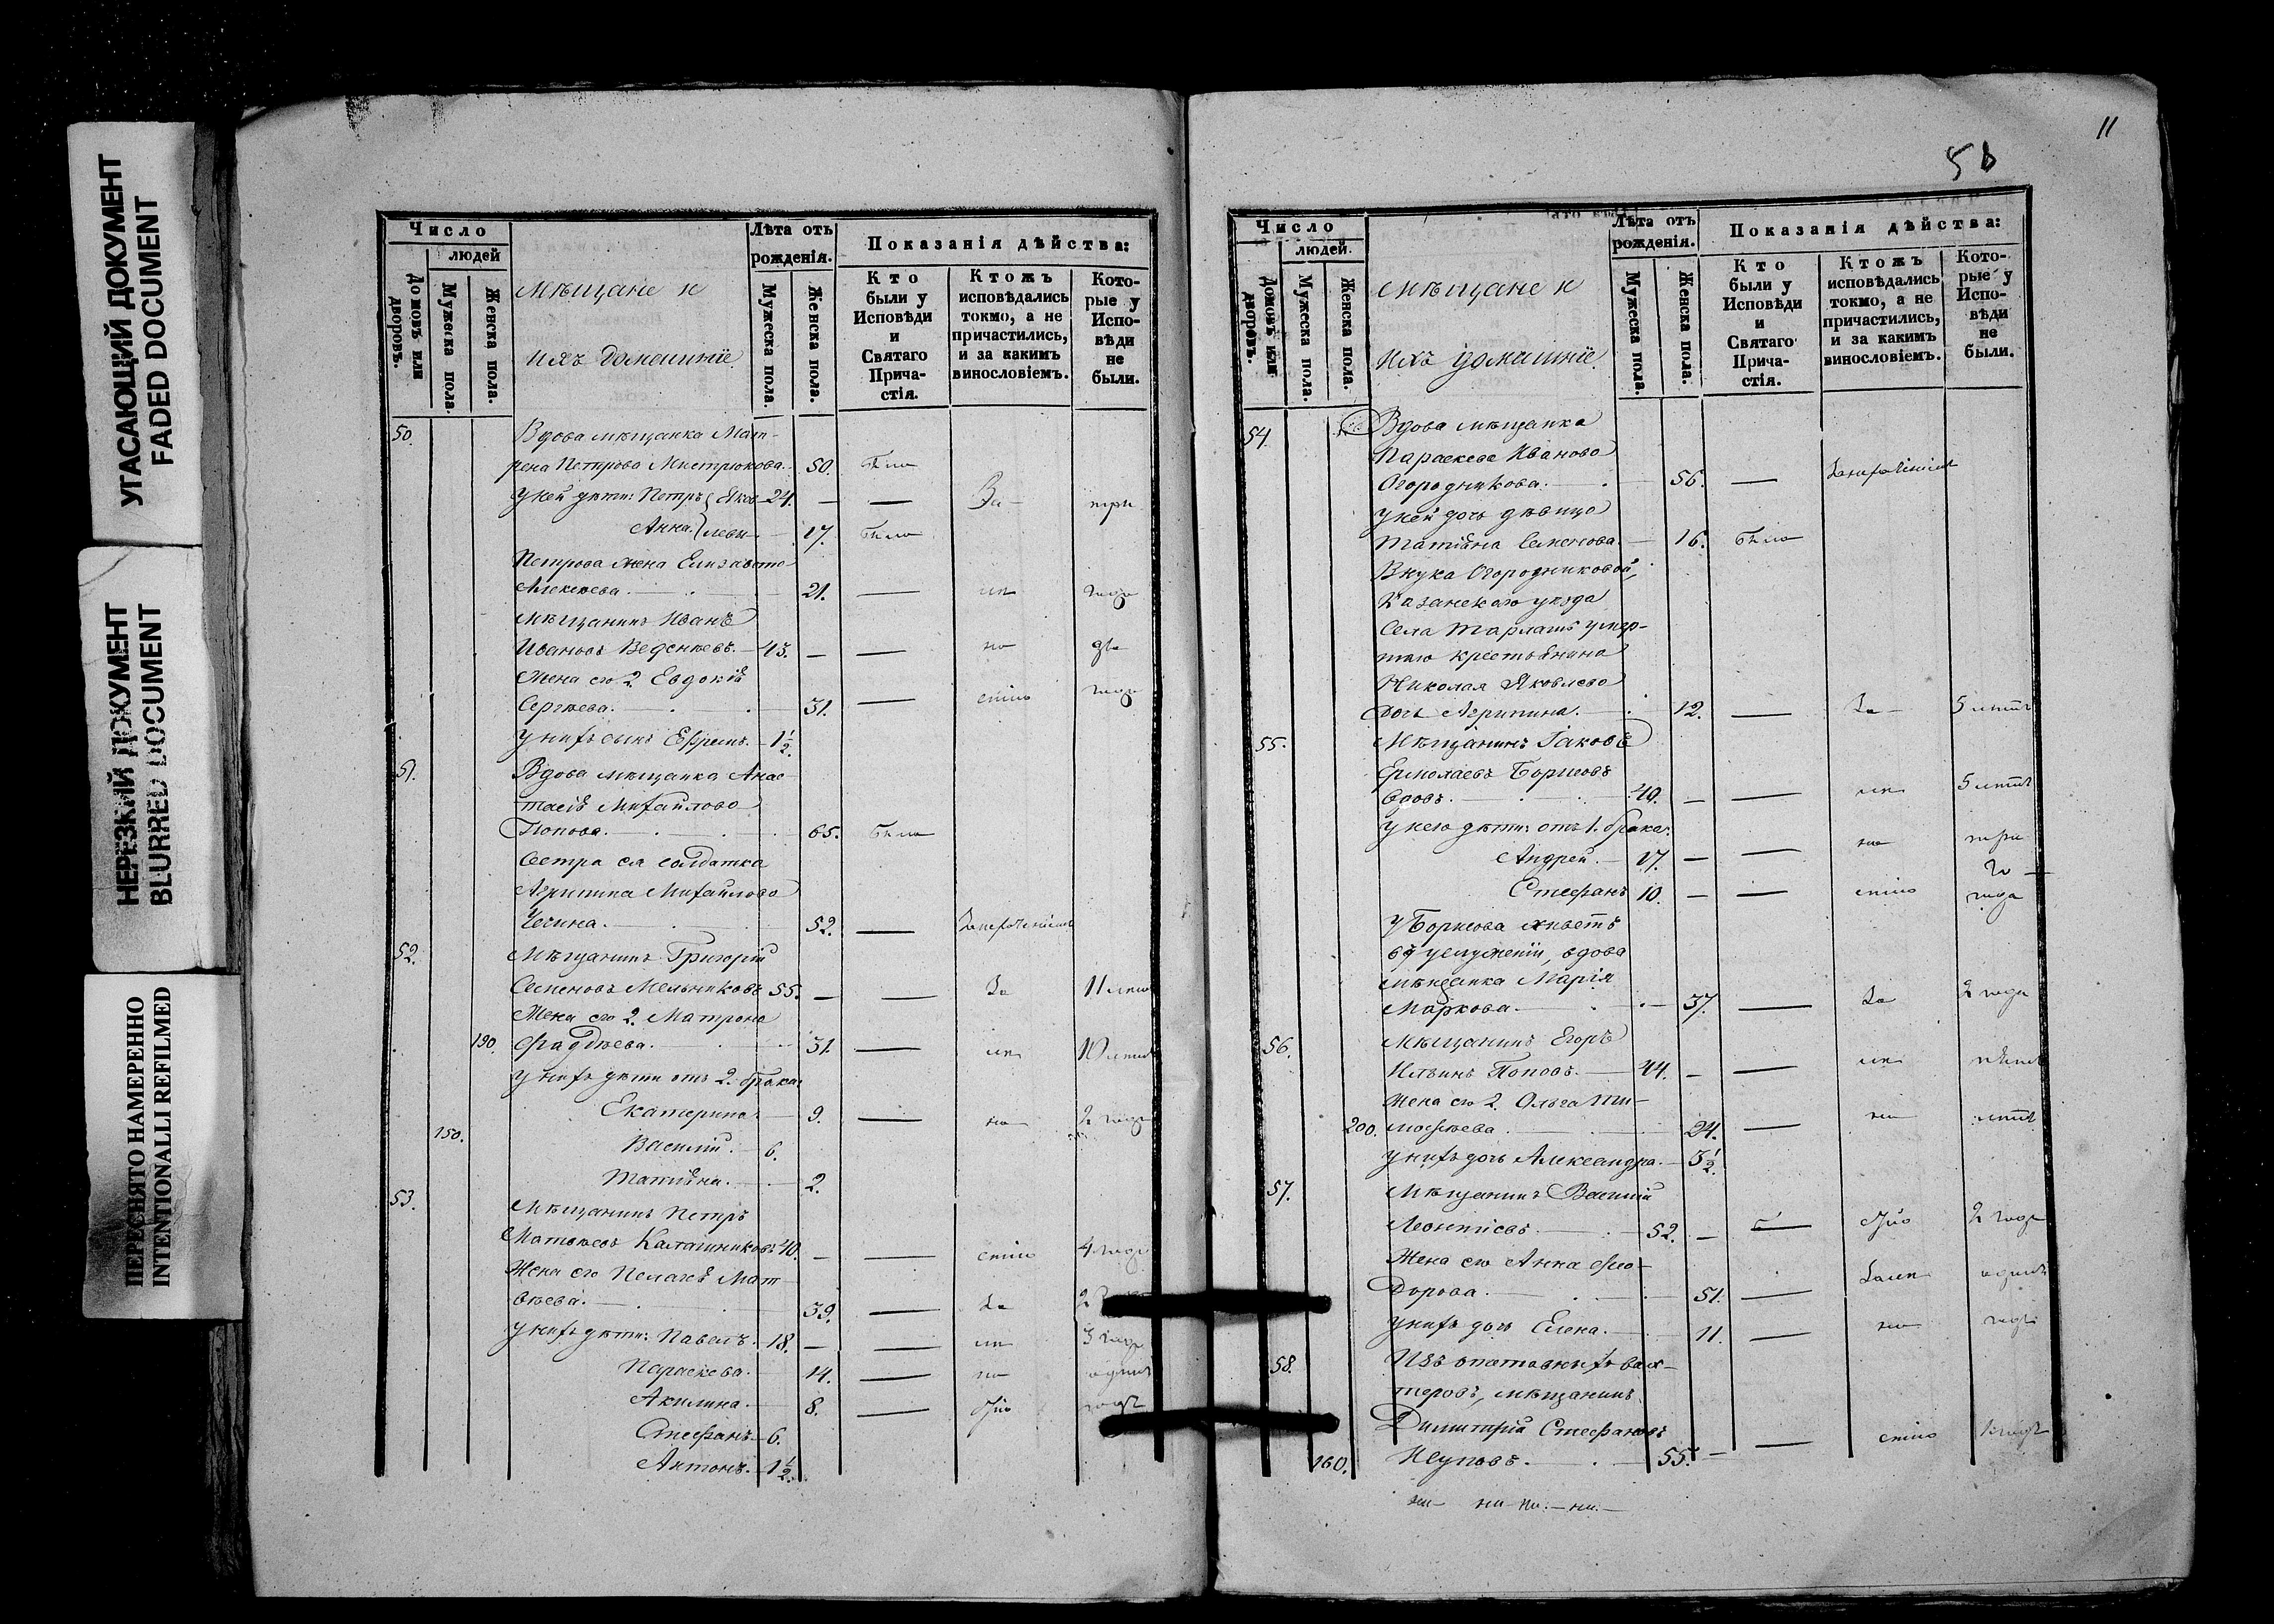 УГАСАЮЩИЙ ДОКУМЕНТ
FADED DOCUMENT
НЕРЕЗКИЙ ДОКУМЕНТ
BLURRED DOCUMENT
ПЕРЕСНЯТО НАМЕРЕННО
INTENTIONALLI REFILMED
Число
людей
Домовъ или дворовъ.
Мужеска пола.
Женска пола.
Мѣщане и
ихъ домашніе.
Лѣта отъ рожденія.
Мужеска пола.
Женска пола.
Показанія дѣйства:
Кто были у Исповѣди и Святаго Причастія.
Ктожъ исповѣдались токмо, а не причастились, и за какимъ винословіемъ.
Которые у Исповѣди не были.
50. Вдова мѣщанка Мат-
рена Петрова Мистрюкова. 50. была
У ней дѣти: Петръ Яков 24. — — За три
Анна левы 17. была
Петрова жена Елизавета
Алексѣева. 21. — года
Мѣщанинъ Иванъ
Ивановъ Веденѣевъ. 43. — — по два
Жена его 2. Евдокія
Сергѣева. 31. — стію года
У нихъ сынъ Ефремъ. 1½
51. Вдова мѣщанка Анас-
тасія Михайлова
Попова. 65. была
Сестра ея солдатка
Агрипина Михайлова
Чечина. 52. —
52. Мѣщанинъ Григорій
Семеновъ Мельниковъ 55. — — За 11 лѣтъ
Жена его 2. Матрона
190. Фаддѣева. 31. — 10 лѣтъ
У нихъ дѣти отъ 2. брака:
Екатерина. 9. — по 2 года
150. Василій. 6.
Татіяна. 2.
53. Мѣщанинъ Петръ
Матвѣевъ Калашниковъ 40. — — стію 4 года
Жена его Пелагея Мат-
вѣева. 39. — За 2
У нихъ дѣти: Павелъ. 18. — — 3 года
Параскева. 14. — по одинъ
Акилина. 8. — годъ
Стефанъ. 6.
Антонъ. 1½.
11
Число
людей.
Домовъ или дворовъ.
Мужеска пола.
Женска пола.
Мѣщане и
ихъ домашніе.
Лѣта отъ рожденія.
Мужеска пола.
Женска пола.
Показанія дѣйства:
Кто были у Исповѣди и Святаго Причастія.
Ктожъ исповѣдались токмо, а не причастились, и за какимъ винословіемъ.
Которые у Исповѣди не были.
54. Вдова мѣщанка
Параскева Иванова
Огородникова. 56. —
У ней дочь дѣвица
Татіяна Семенова. 16. была
Внука Огородниковой,
Казанскаго уѣзда
Села Тарлашъ умер-
шаго крестьянина
Николая Яковлева
дочь Агрипина. 12. — За 5 лѣтъ
55. Мѣщанинъ Іаковъ
Ермолаевъ Борисовъ
вдовъ. 49. — — 5 лѣтъ
У него дѣти: отъ 1. брака:
Андрей. 17. — — по три
Стефанъ 10. — — стію года
У Борисова живетъ
въ услуженіи, вдова
мѣщанка Марія
Маркова. 37. — За 2 года
56. Мѣщанинъ Егоръ
Ильинъ Поповъ. 44. — —
Жена его 2. Ольга Ти-
200. моѳѣева. 24. — лѣтъ
У нихъ дочь Александра. 3½.
57. Мѣщанинъ Василій
Леонтіевъ 52. — — 2 года
Жена его Анна Фео-
дорова. 51. — одинъ
У нихъ дочь Елена. 11. — по годъ
58. Изъ отставныхъ вах-
теровъ, мѣщанинъ
Димитрій Стефановъ
160. Исуповъ. 55. — — стію